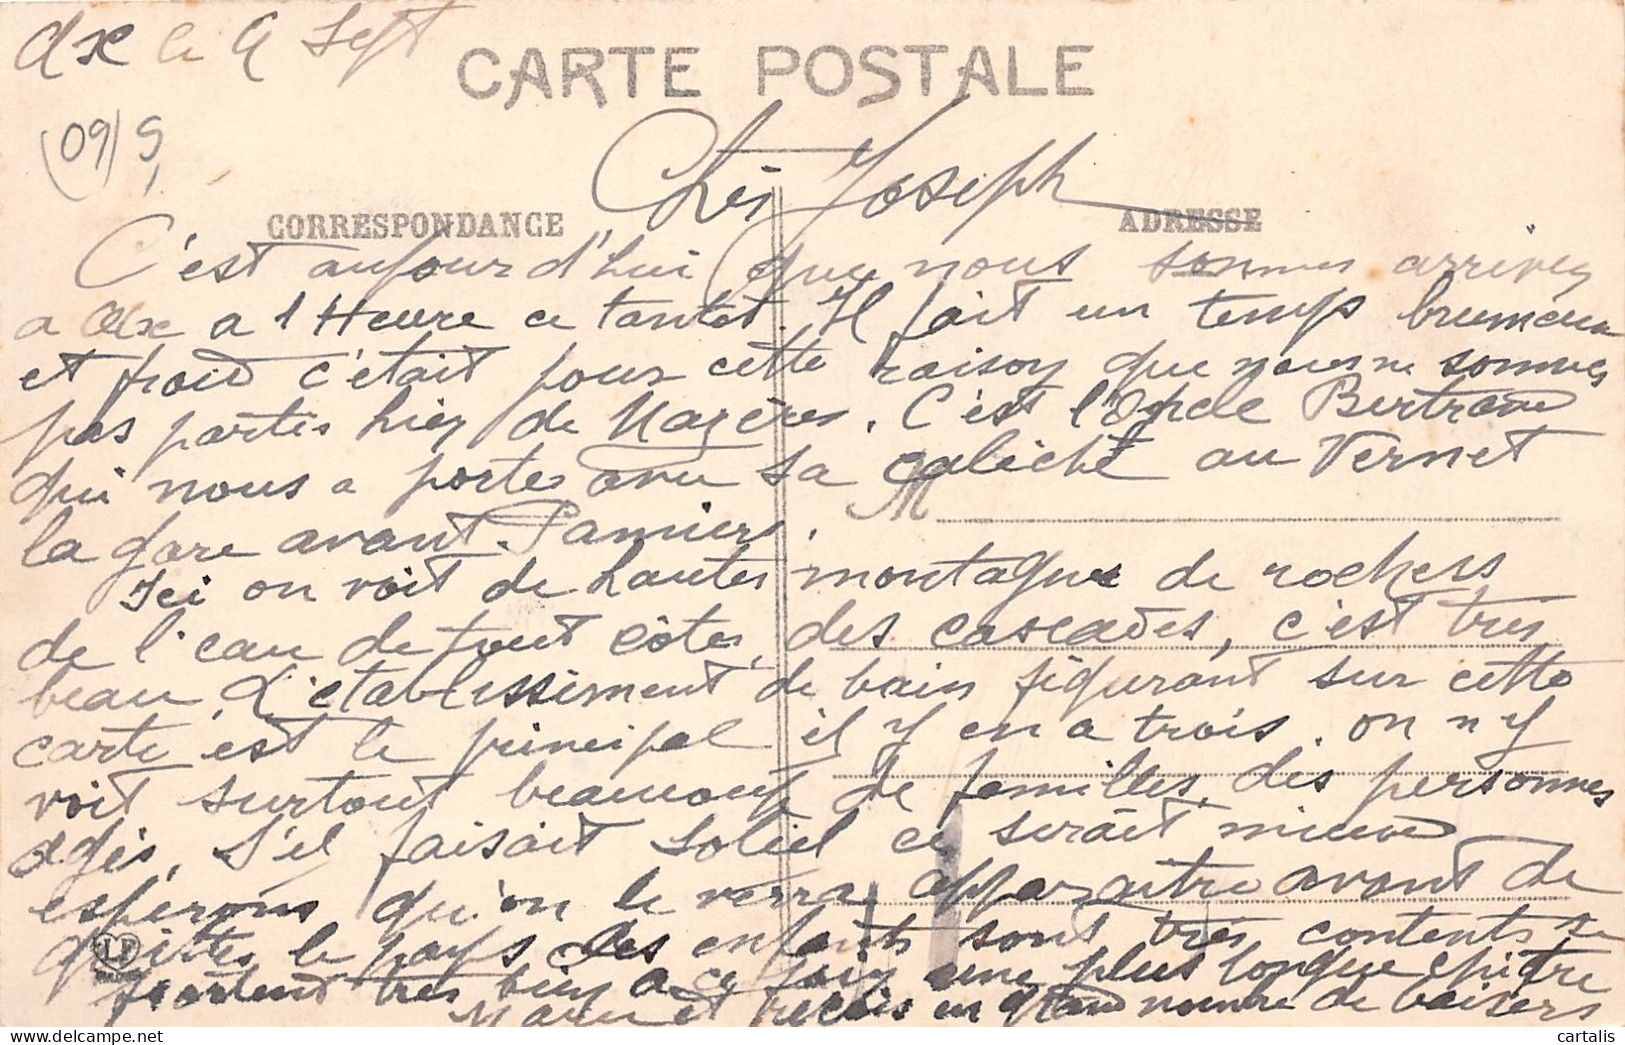 Ax le 9 Sept
CARTE POSTALE
(09) 9
Cher Joseph
CORRESPONDANCE
ADRESSE
C'est aujourd'hui que nous sommes arrivés
a Ax a l'Heure ce tantot. Il fait un temps brumeux
et froid c'était pour cette raison que nous ne sommes
pas partis hier de Mazères. C'est l'Oncle Bertrand
qui nous a portés avec sa calèche au Vernet
M
la gare avant Pamiers.
Ici on voit de hautes montagnes de rochers
de l'eau de tout côtés, des cascades, c'est très
beau. L'établissement de bain figurant sur cette
carte est le principal il y en a trois. on n'y
voit surtout beaucoup de familles, des personnes
agés. S'il faisait soleil ce serait mieux
esperons qu'on le verra apparaitre avant de
quittes le pays les enfants sont très contents se
LF
portent très bien a ce soir une plus longue epitre
et recois en grand nombre de baisers
cartalis.com